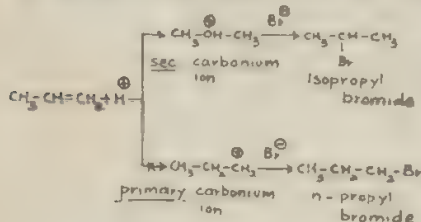 CH₃-CH-CH₃ Br⊖ CH₃-CH-CH₃
⊕ Br
sec carbonium ion
Isopropyl bromide
CH₃-CH=CH₂ + H⊕
CH₃-CH₂-CH₂ Br⊖ CH₃-CH₂-CH₂-Br
⊕
primary carbonium ion
n-propyl bromide